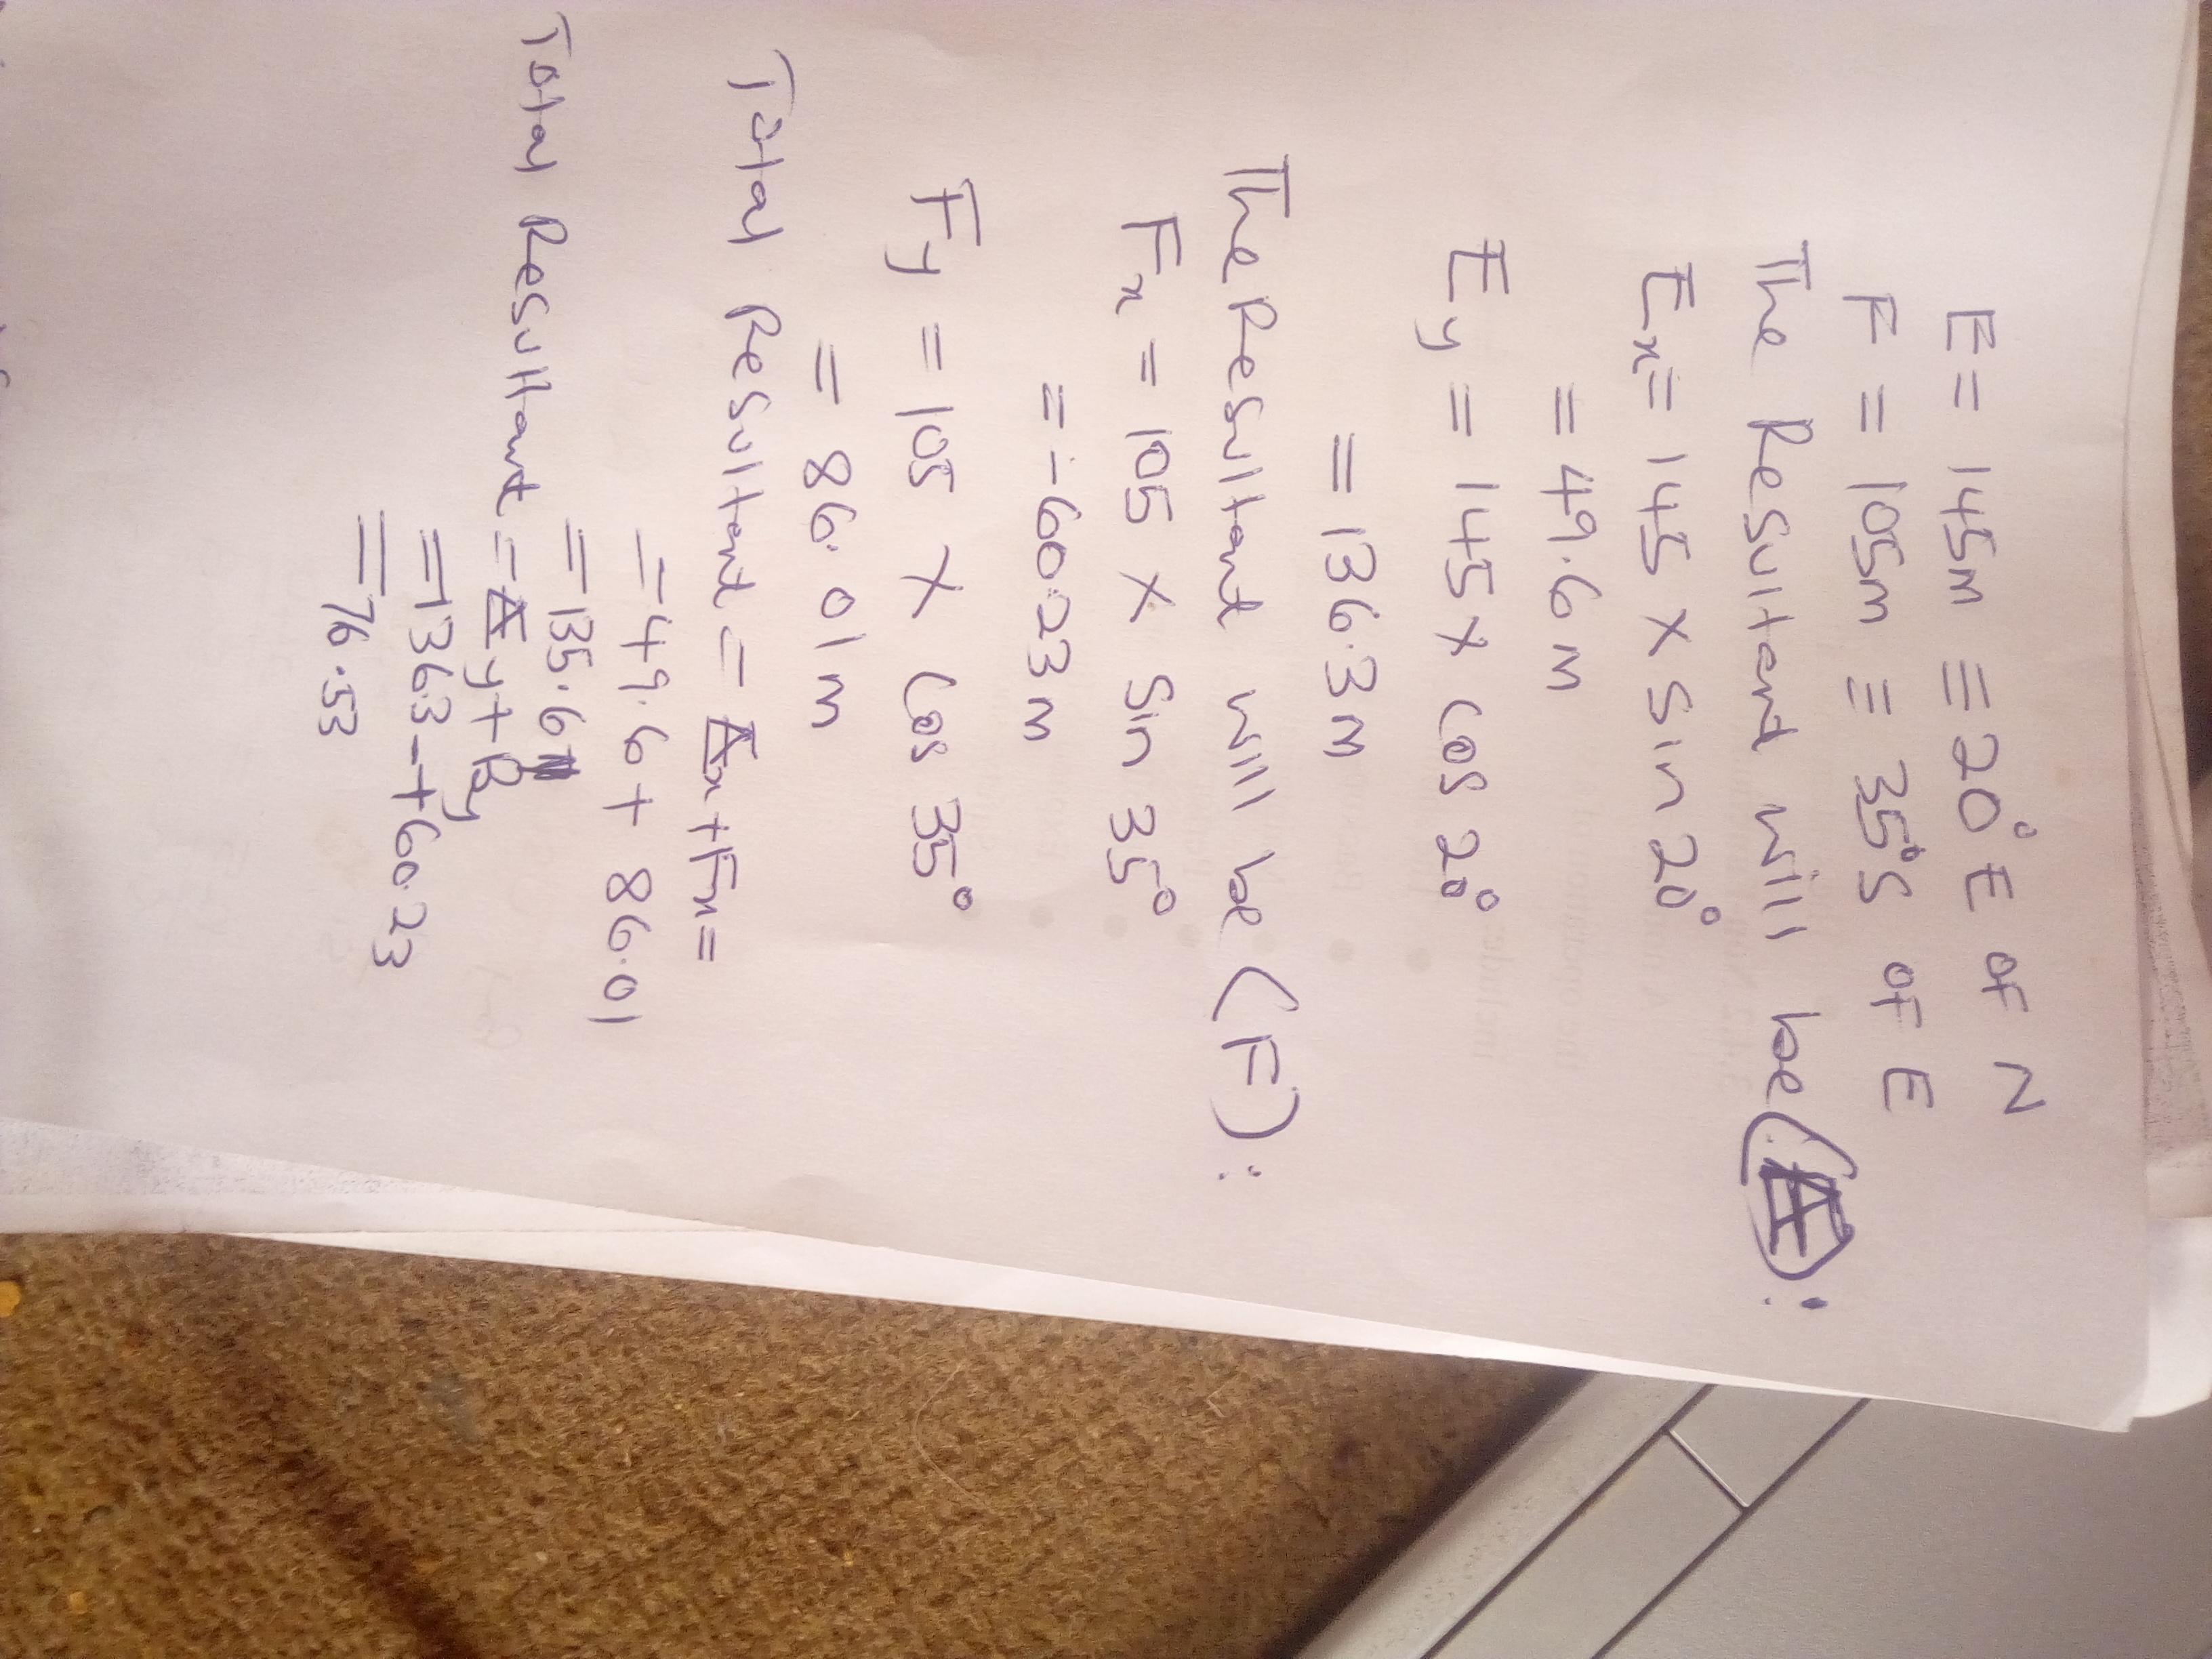 E = 145m ≡ 20° E of N
F = 105m ≡ 35°S of E
The Resultant will be (E):
Ex = 145 x Sin 20°
= 49.6 m
Ey = 145 x Cos 20°
= 136.3 m
The Resultant will be (F):
Fx = 105 x Sin 35°
= -60.23 m
Fy = 105 x Cos 35°
= 86.01 m
Total Resultant = Ex + Fx =
= 49.6 + 86.01
= 135.61
Total Resultant = Ey + By
= 136.3 - + 60.23
= 76.53